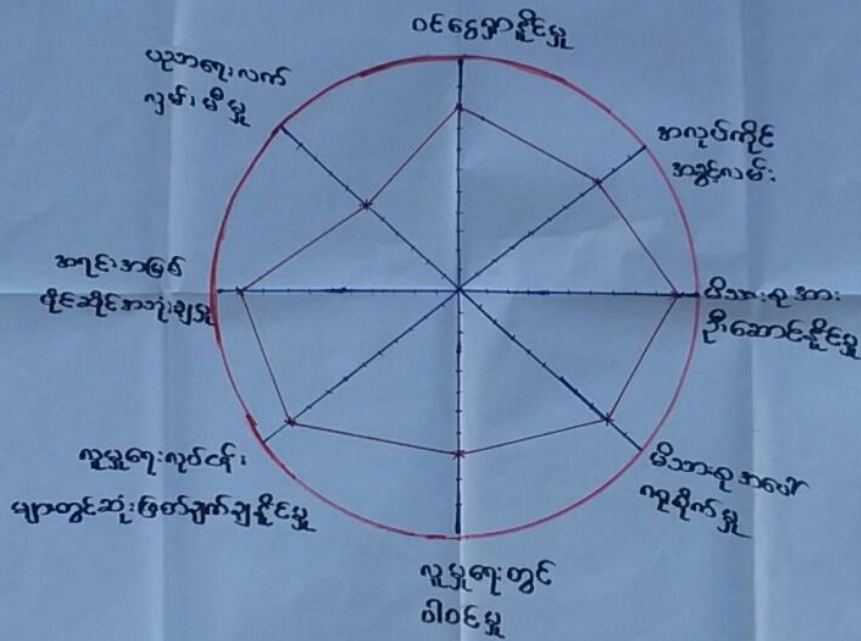 ဝင်ငွေရှာနိူင်မှု
အလုပ်ကိုင်
အခွင့်လမ်း
မိသားစုအား
ဦးဆောင်နိူင်မှု
မိသားစုအပေါ်
လူမှုရေးတွင်
ပါဝင်မှု
လူမှုရေးလုပ်ငန်း
များတွင်ဆုံးဖြတ်ချက်ချနိူင်မှု
အရင်းအမြစ်
ပိုင်ဆိုင်အသုံးချမှု
ပညာရေးလက်
လှမ်းမီမှု